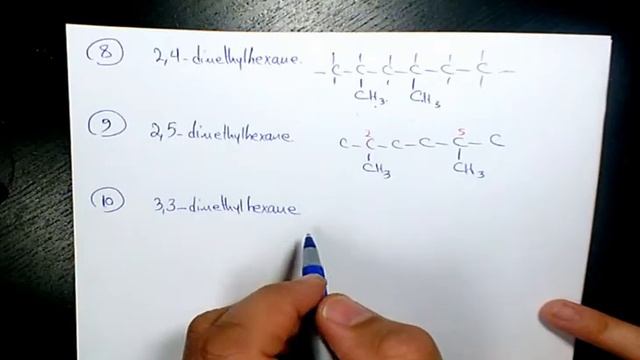 8 2,4-dimethylhexane. - C - C - C - C - C - C -
CH3. CH3
9 2,5-dimethylhexane C - C - C - C - C - C
2 5
CH3 CH3
10 3,3-dimethylhexane